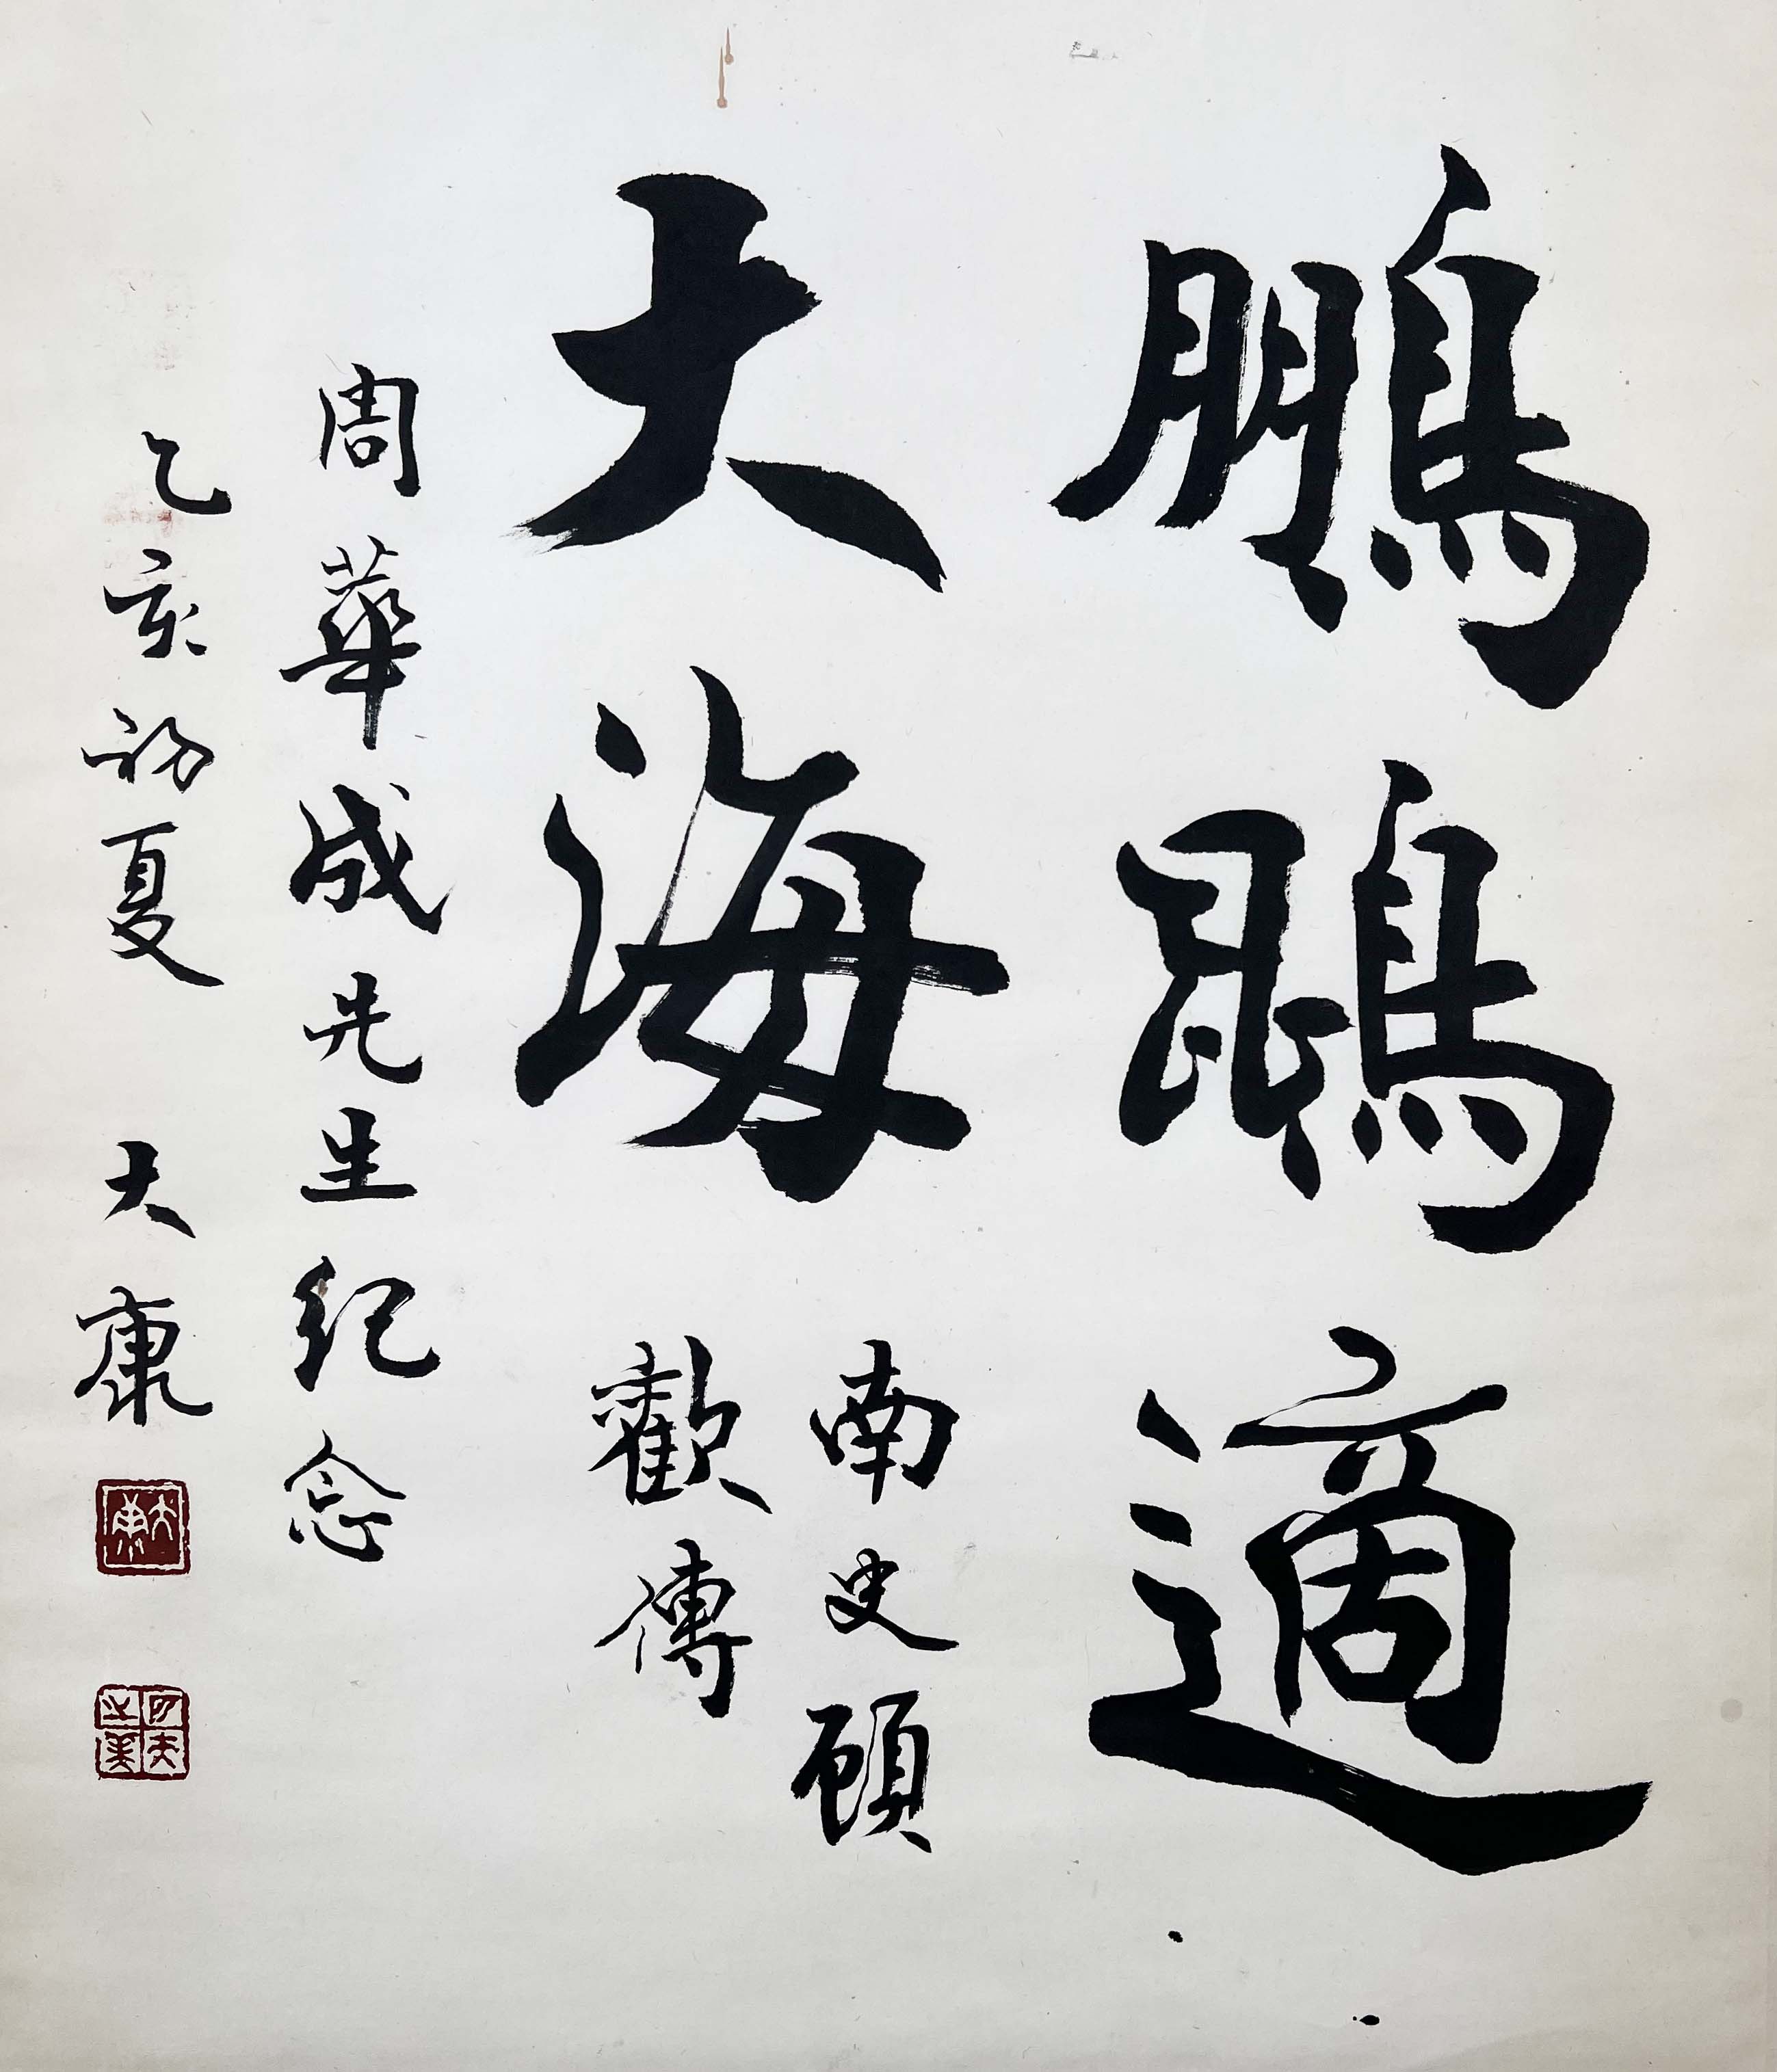 鵬鶤適
大海
南史顧
歡傳
周華成先生纪念
乙亥初夏 大康
大康